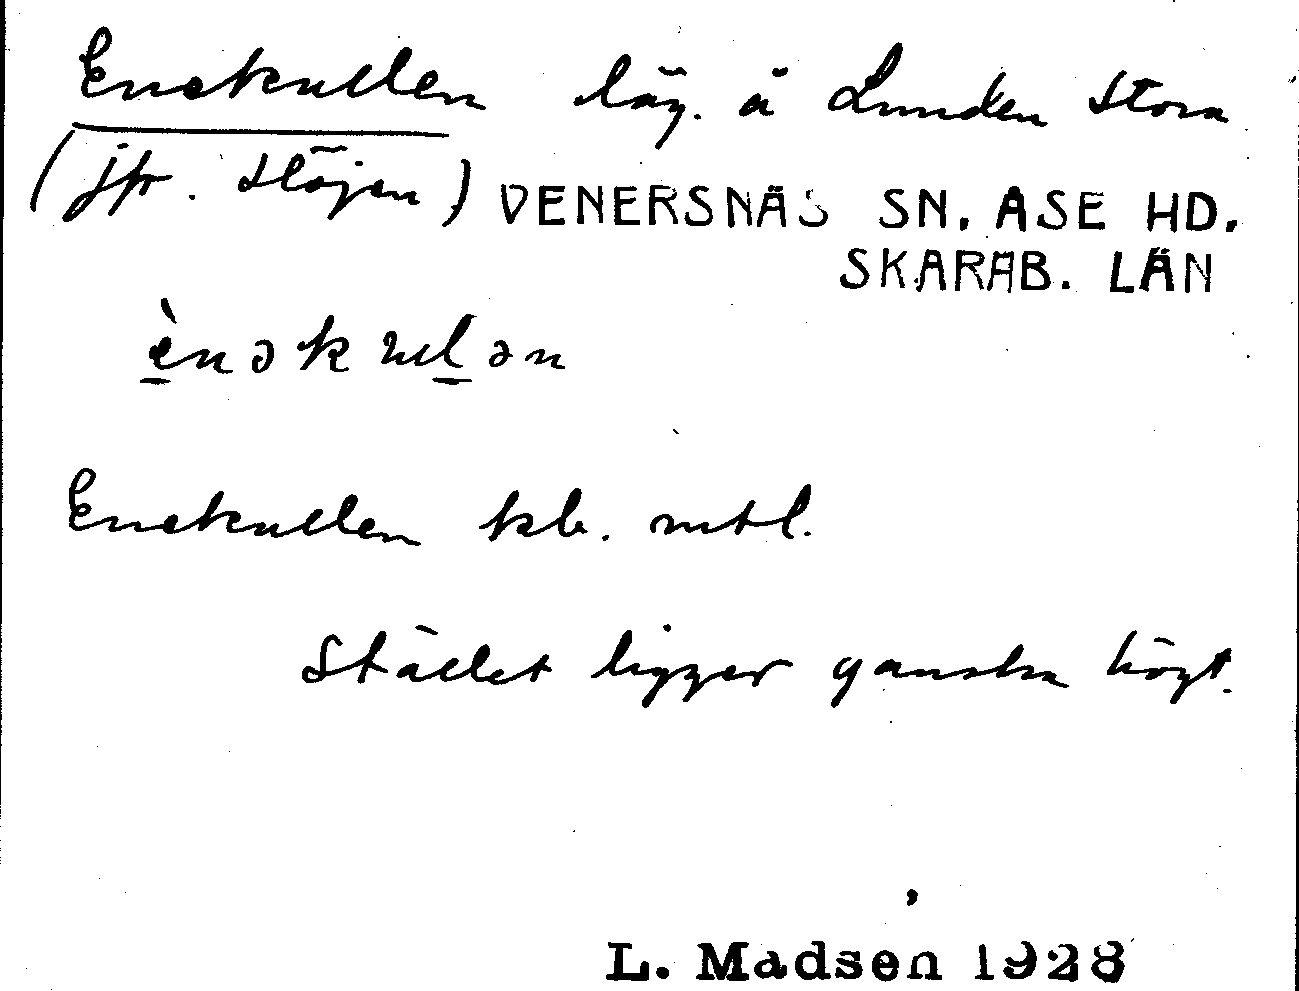 Enekullen läg. å Lunden Stora
(jfr. Slöjen) VENERSNÄS SN. ÅSE HD.
SKARAB. LÄN
ènəkulən
Enekullen kb. mtl.
Stället ligger ganska högt.
L. Madsen 1928